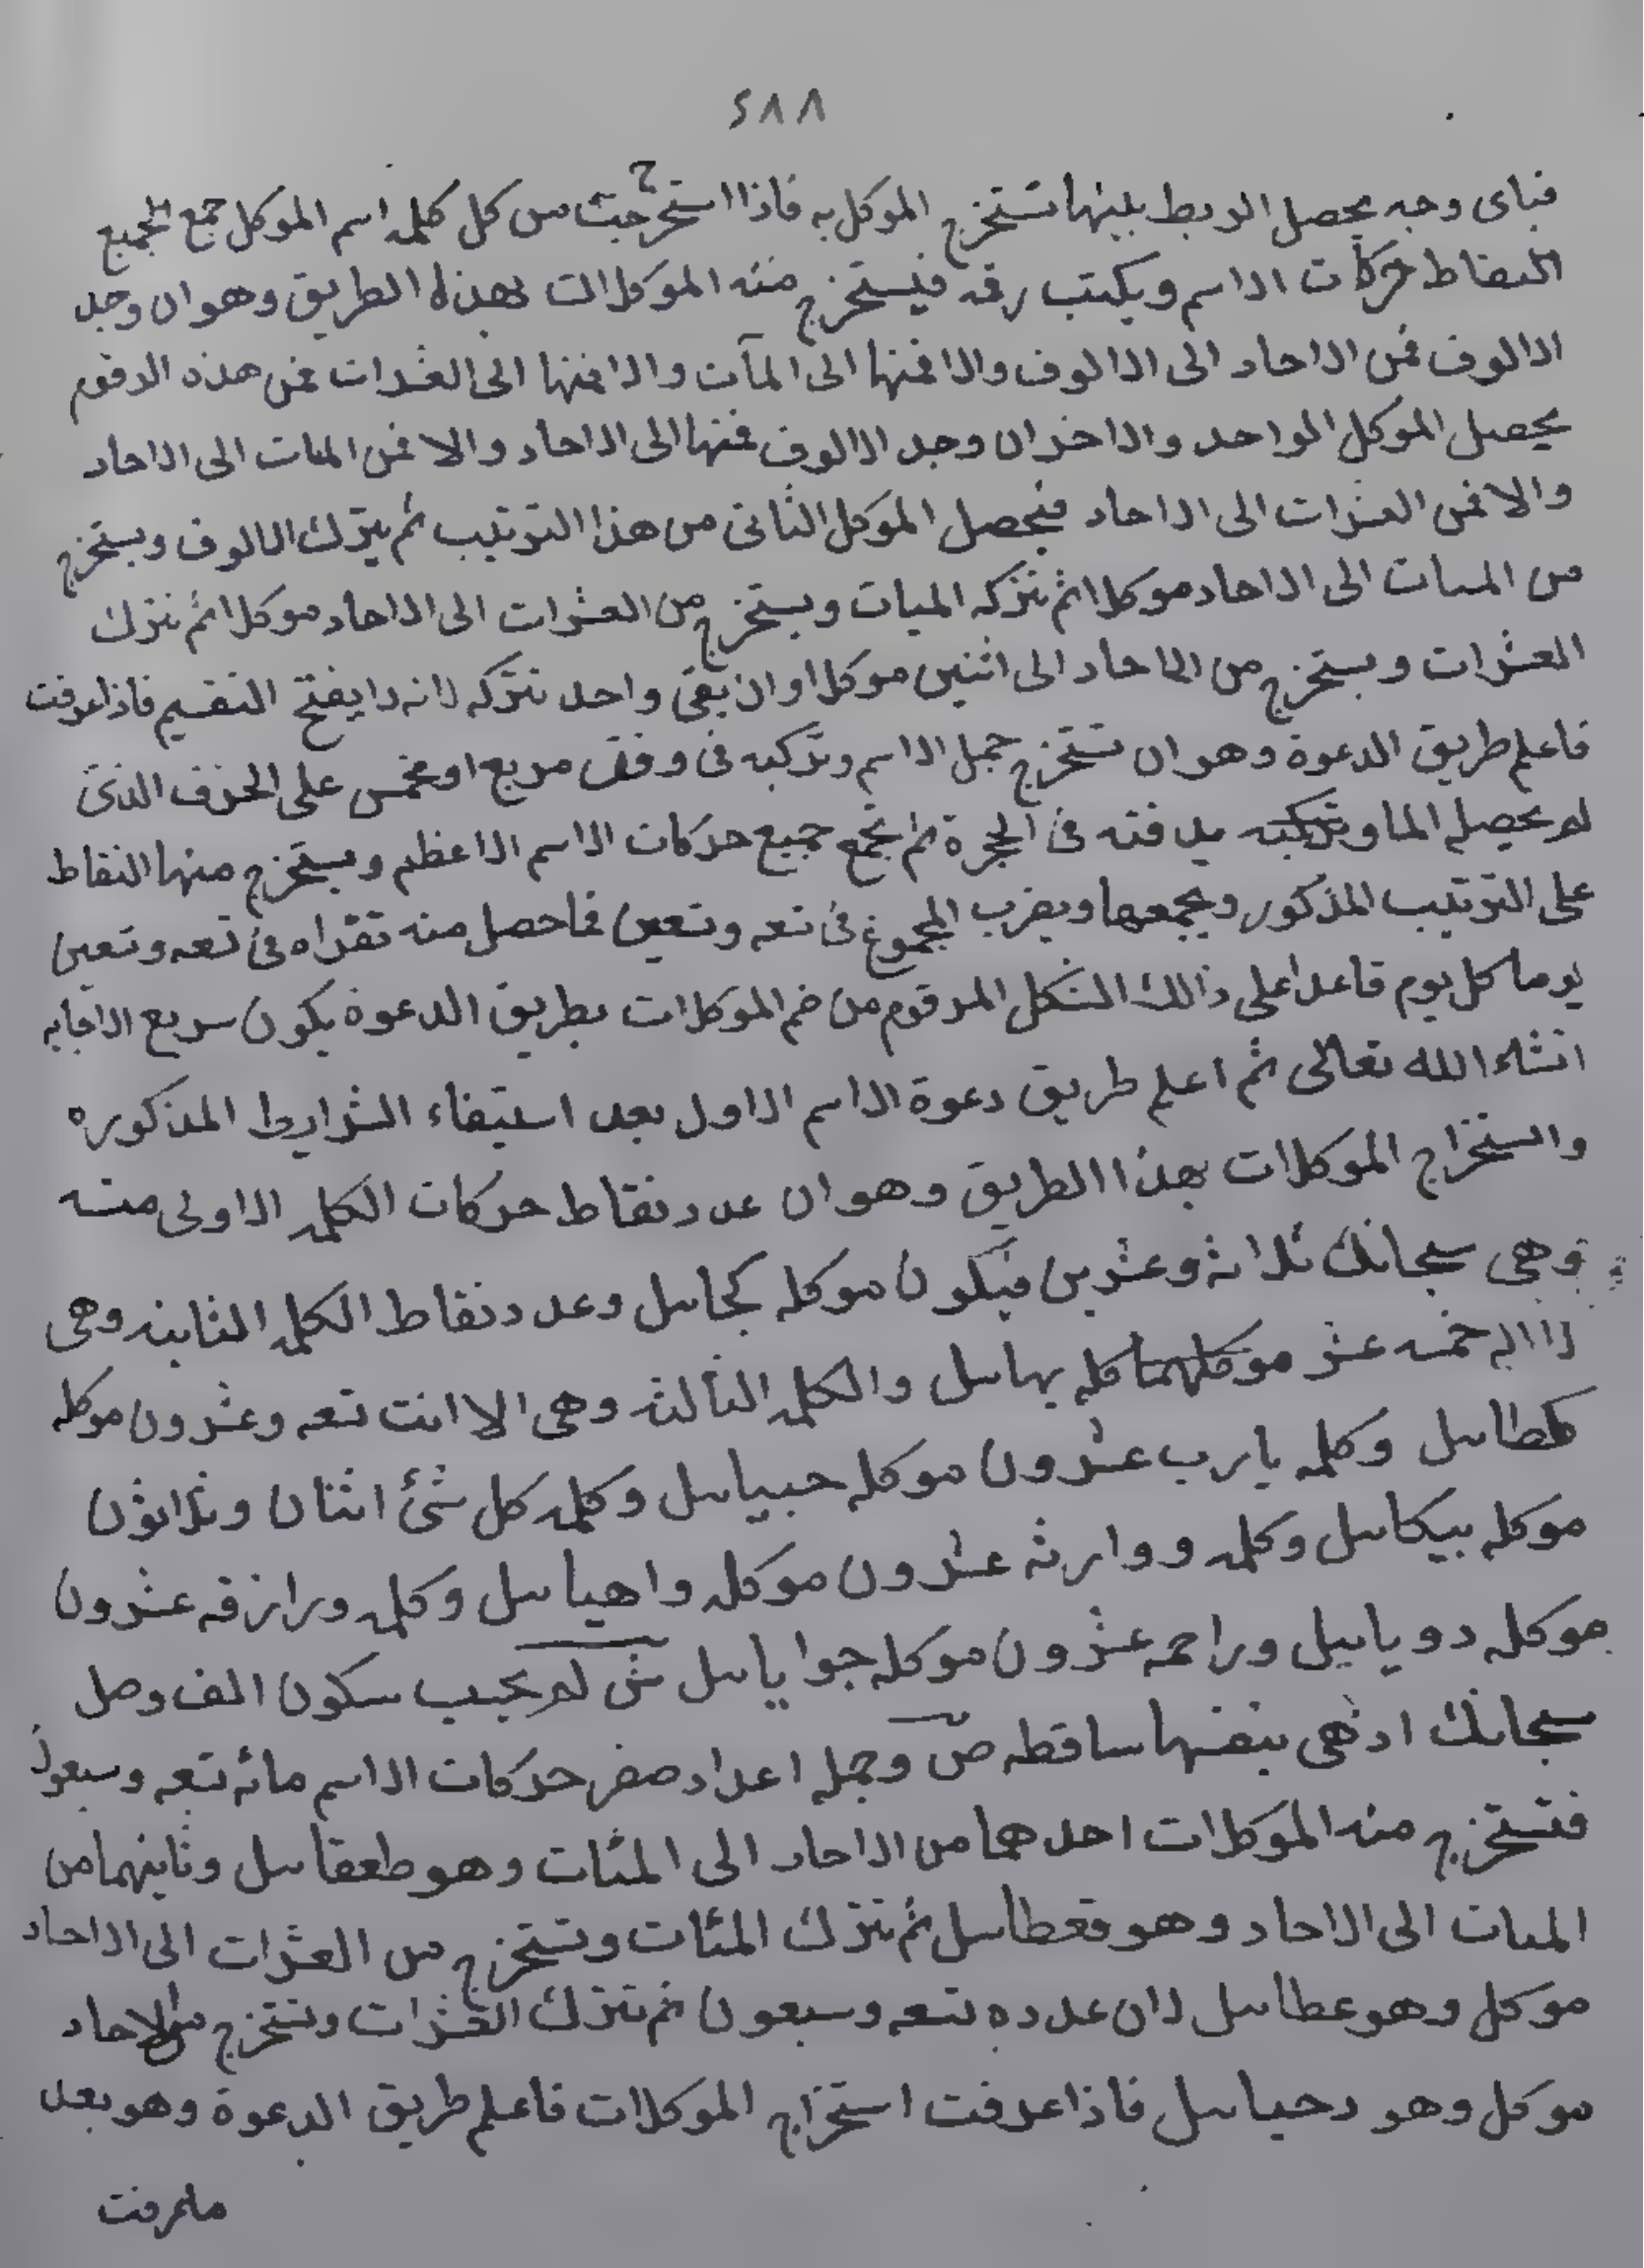 ٢٨٨
فباى وجه يحصل الربط بينها تستخرج الموكل به فاذا استخرجت من كل كلمه اسم الموكل جمع الجميع
النقاط حركات الاسم ويكتب رقه فيستخرج منه الموكلات بهذه الطريق وهو ان وجد
الالوف فمن الاحاد الى الالوف والا فمنها الى المآت والا فمنها الى العشرات فمن هذه الرقوم
يحصل الموكل الواحد والاخر ان وجد الالوف فمنها الى الاحاد والا فمن المات الى الاحاد
والا فمن العشرات الى الاحاد فيحصل الموكل الثانى من هذا الترتيب ثم يترك الالوف ويستخرج
من المات الى الاحاد موكلا ثم تتركه الميات ويستخرج من العشرات الى الاحاد موكلا ثم نترك
العشرات ويستخرج من الاحاد الى اثنين موكلا وان بقى واحد نتركه لانه لا يفتح التقسيم فاذا عرفت
فاعلم طريق الدعوة وهو ان تستخرج جمل الاسم وتركبه فى وفق مربع او مخمس على الخزف الذى
لم يحصله الما وتركبه يدفنه فى الحجرة ثم تجمع جميع حركات الاسم الاعظم ويستخرج منها النقاط
على الترتيب المذكور ويجمعها ويضرب المجموع فى تسعه وتسعين فما حصل منه تقراه فى تسعه وتسعين
يوما كل يوم قاعدا على ذالك الشكل المرقوم من ضم الموكلات بطريق الدعوة يكون سريع الاجابه
انشاء الله تعالى ثم اعلم طريق دعوة الاسم الاول بعد استيفاء الشرايط المذكوره
واستخراج الموكلات بهذا الطريق وهو ان عدد نقاط حركات الكلمه الاولى منه
وهى سبحانك ثلاثه وعشرين فيكون موكله كجاىىل وعدد نقاط الكلمه الثانيه وهى
لا اله خمسه عشر موكلهما كله يهاىىل والكلمه الثالثه وهى الا انت تسعه وعشرون موكله
كطاىىل وكلمه يارب عشرون موكله حبياىىل وكلمه كل شئ اثنان وثلاثون
موكله بيكاىىل وكلمه ووارثه عشرون موكله واهياىىل وكلمه ورازقه عشرون
موكله دوياىيل وراحمه عشرون موكله جواياىىل ش لم يحسب سكون الف وصل
سبحانك اذ هى بنفسها ساقطه ص وجمله اعداد صفر حركات الاسم مائه تسعه وسبعون
فتستخرج منه الموكلات احدهما من الاحاد الى المئات وهو طعقاىىل وثانيهما من
المىات الى الاحاد وهو قعطاىىل ثم تترك المئات وتستخرج من العشرات الى الاحاد
موكل وهو عطاىىل لان عدده تسعه وسبعون ثم تترك العشرات وتستخرج من الاحاد
موكل وهو دحياىىل فاذا عرفت استخراج الموكلات فاعلم طريق الدعوة وهو بعد
ما عرفت